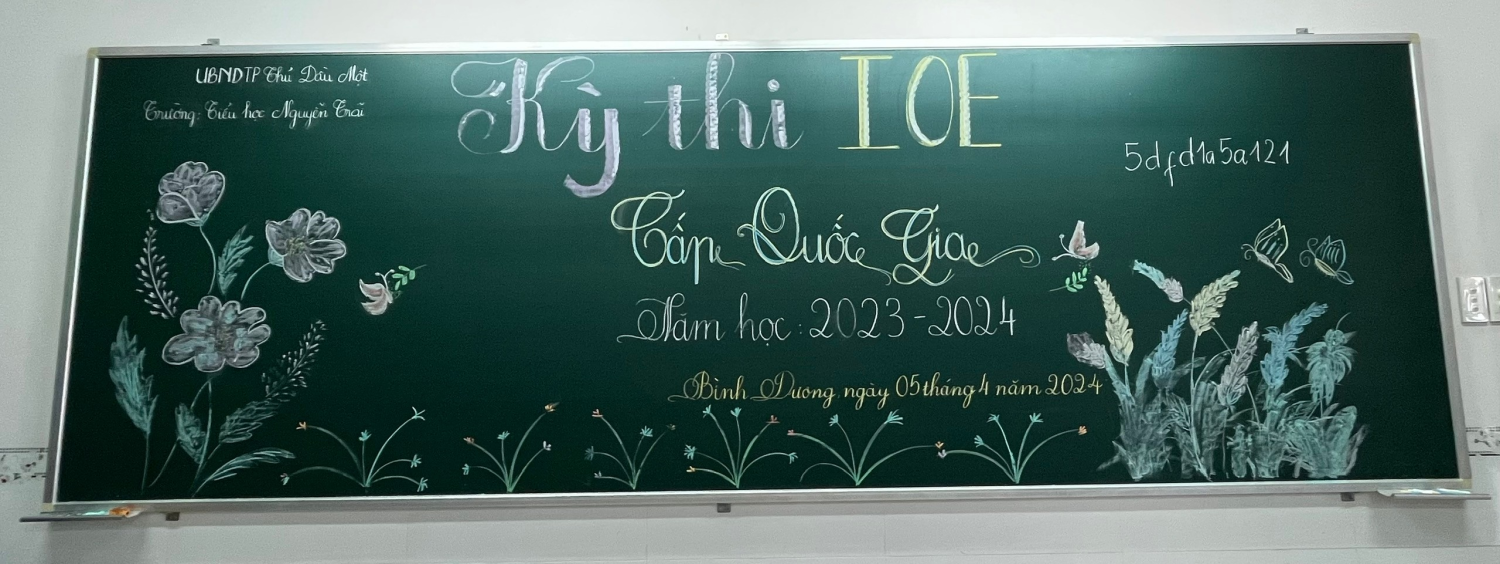 UBNDTP Thủ Dầu Một
Trường: Tiểu học Nguyễn Trãi
Kỳ thi IOE
5dfd1a5a121
Cấp Quốc Gia
Năm học: 2023-2024
Bình Dương, ngày 05 tháng 4 năm 2024